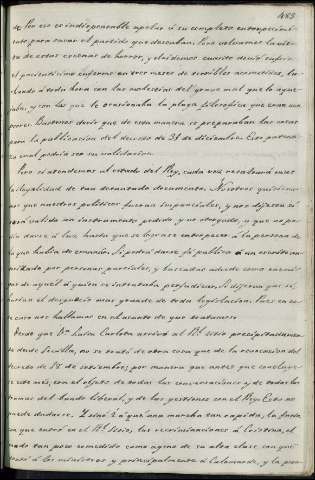 485
de. Por eso es indispensable apelar á su completo entorpecimi-
ento para sacar el partido que deseaban. Pero volvamos la vista
de estas escenas de horror, y olvidemos cuanto debió sufrir
el pacientísimo enfermo en tres meses de terribles acometidas, lu-
chando á toda hora con las molestias del grave mal que le aque-
jaba, y con las que le ocasionaba la plaga filosofica que eran aun
peores. Bastenos decir que de esta manera se preparaban las cosas
para la publicacion del decreto de 31 de diciembre. Esto patenti-
za cual podria ser su validacion.
Pero si atendemos al estado del Rey, cada vez resaltará mas
la ilegalidad de tan decantado documento. Nosotros quisiera-
mos que nuestros politicos fueran imparciales, y nos dijeran si
será valido un instrumento pedido y no otorgado, y que no po-
dia darse á luz hasta que se lograse entorpecer á la persona de
la que habia de emanar. Si podrá darse fé publica á un escrito au-
torizado por personas parciales, y buscadas adrede como enemi-
gas de aquel á quien se intentaba perjudicar. Si dijeran que sí,
harian el desprecio mas grande de toda legislacion. Pues en es-
te caso nos hallamos en el asunto de que tratamos.
Desde que Dª Luisa Carlota arrivó al Rl. Sitio precipitadamen-
te desde Sevilla, no se trató de otra cosa que de la revocacion del
decreto de 18 de setiembre; por manera que antes que concluye-
se este mes, era el objeto de todas las conversaciones y de todas las
tramas del bando liberal, y de las gestiones con el Rey. Esto no
puede dudarse. Y sinó á que una marcha tan rapida, la furia
con que entró en el Rl. Sitio, las reconvenciones á Cristina, el
modo tan poco comedido como ageno de su alta clase, con que
trató á los ministros y principalmente á Calomarde, y la pron-